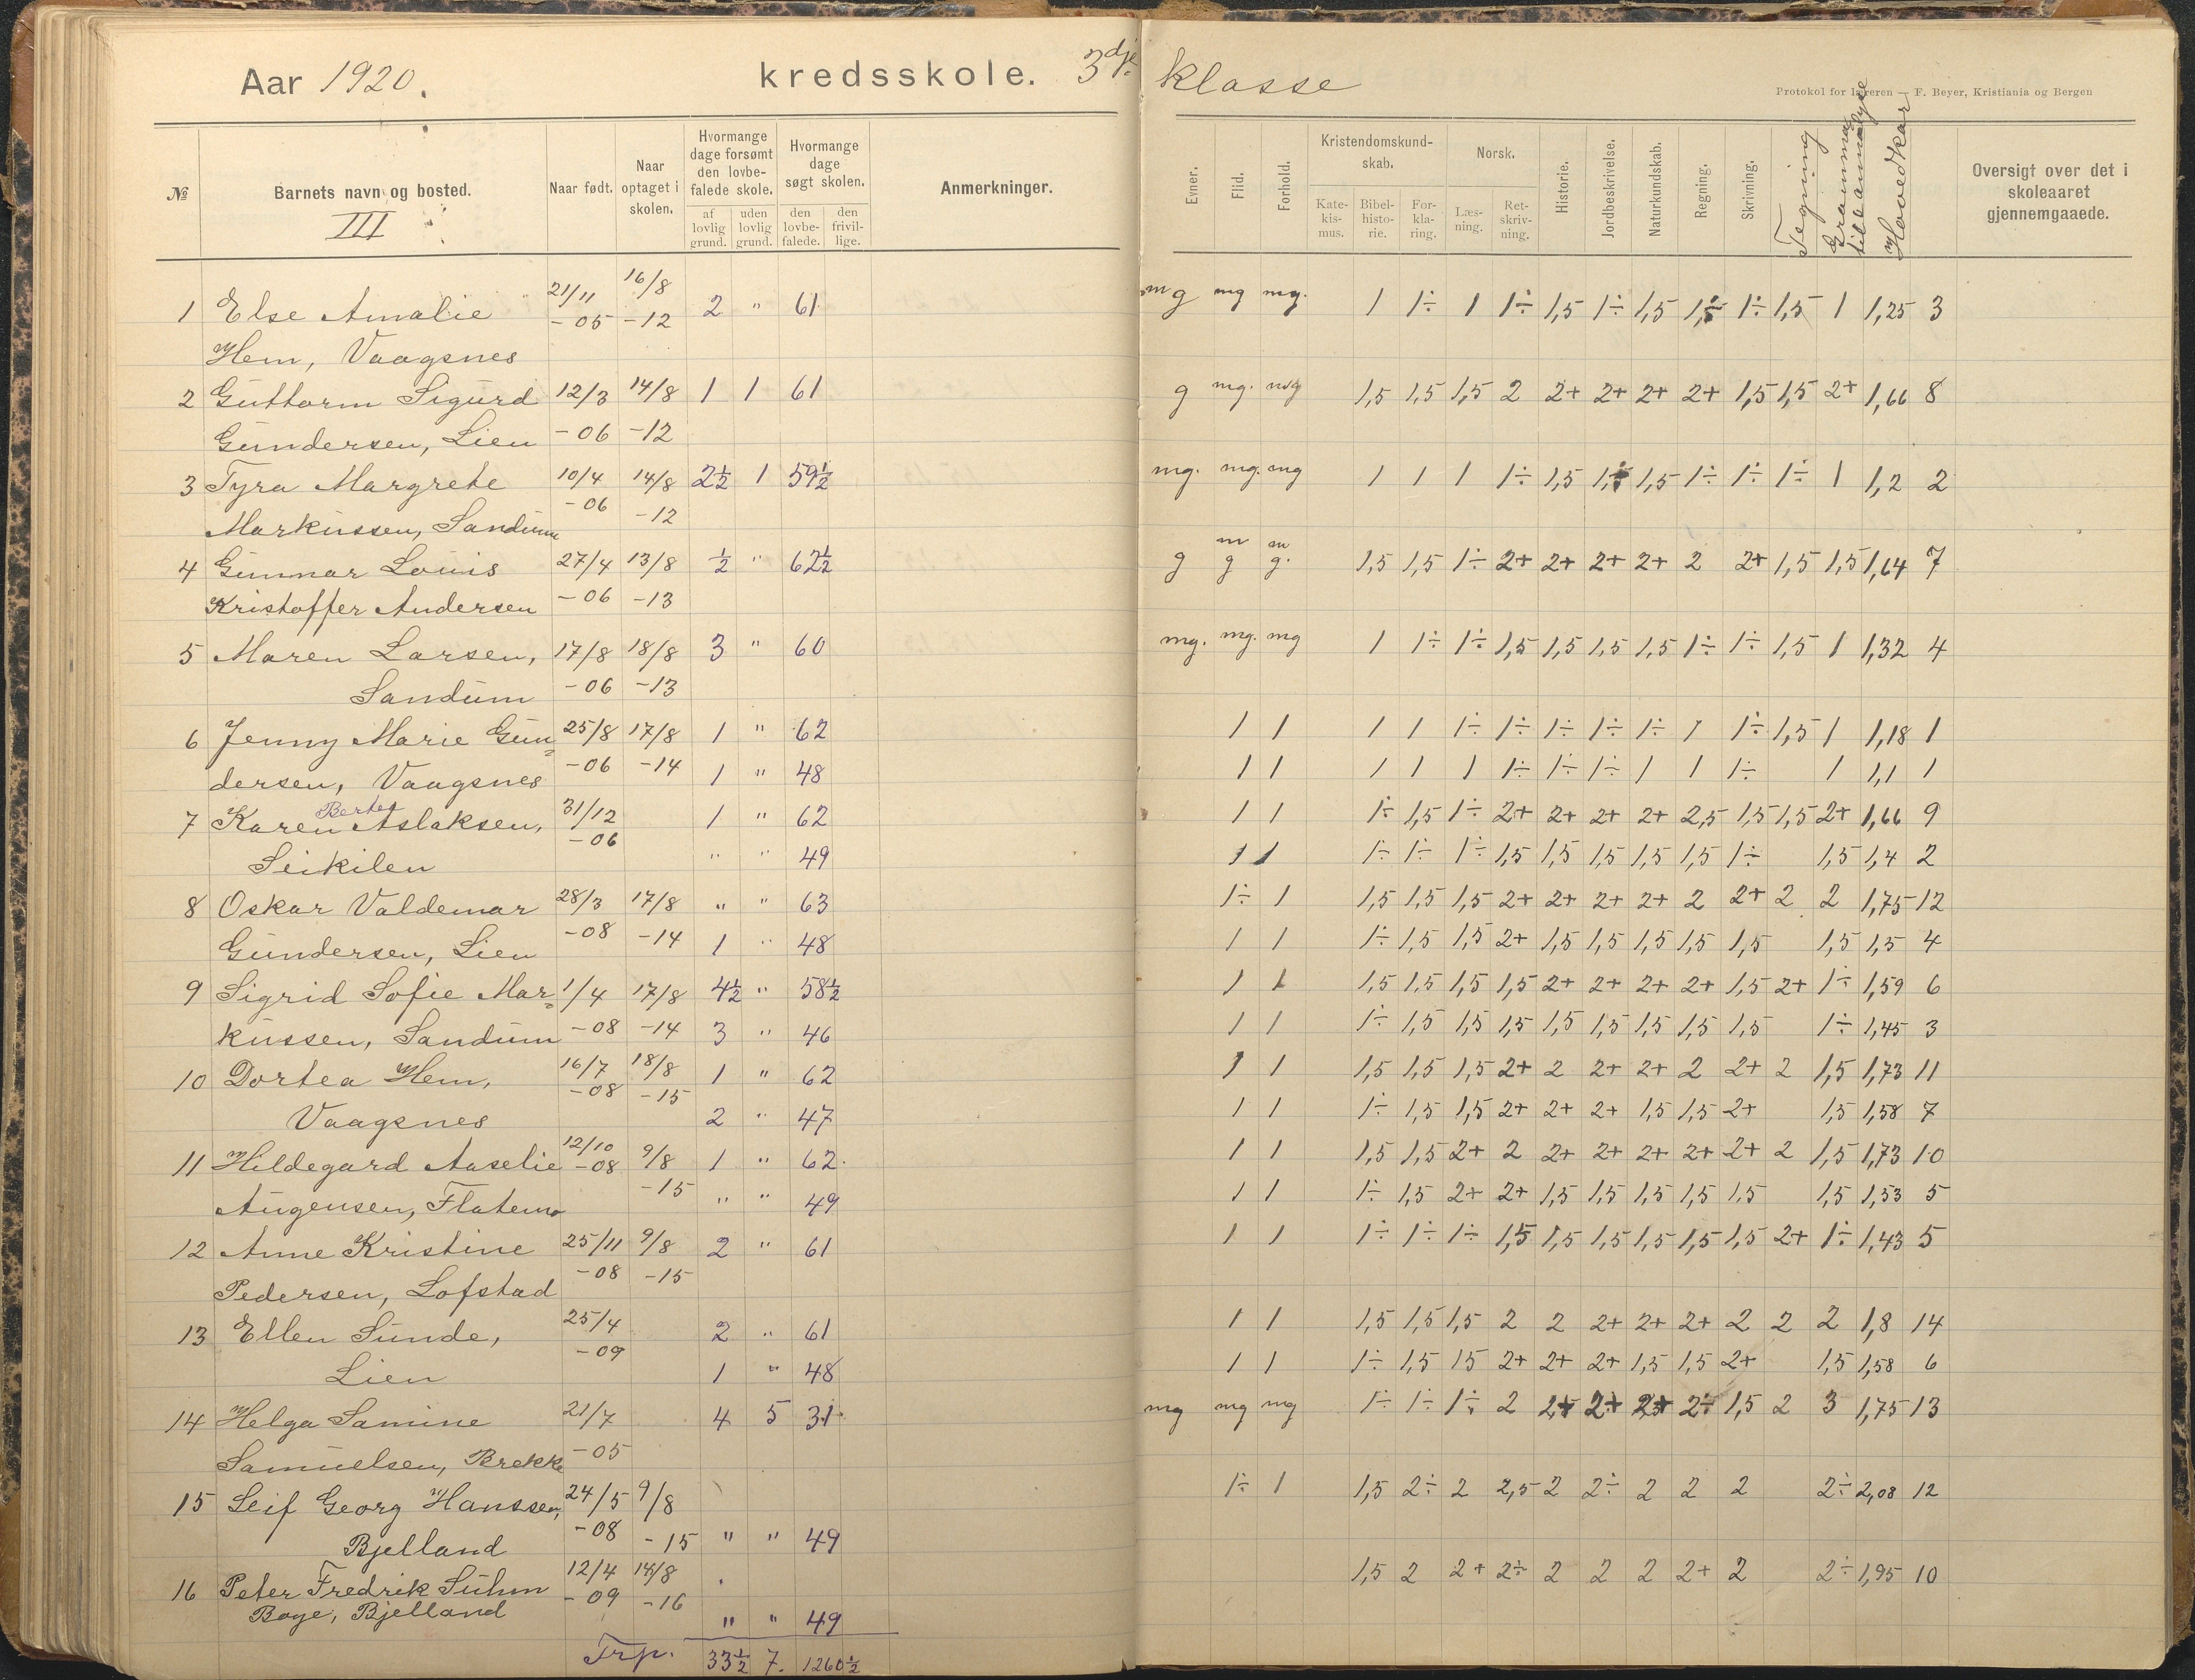 Aar 1920. kredsskole. 3dje klasse
Protokol for læreren — F. Beyer, Kristiania og Bergen
№ Barnets navn og bosted. III Naar født. Naar optaget i skolen. Hvormange dage forsømt den lovbefalede skole. af lovlig grund. uden lovlig grund. Hvormange dage søgt skolen. den lovbefalede. den frivillige. Anmerkninger.
Evner. Flid. Forhold. Kristendomskundskab. Katekismus. Bibelhistorie. Forklaring. Norsk. Læsning. Retskrivning. Historie. Jordbeskrivelse. Naturkundskab. Regning. Skrivning. Tegning Hovedkar Oversigt over det i skoleaaret gjennemgaaede.
1 Else Amalie 21/11 -05 16/8 -12 2 " 61 mg mg mg. 1 1÷ 1 1÷ 1,5 1÷ 1,5 1,5 1÷ 1,5 1 1,25 3
Hem, Vaagsnes
2 Guttorm Sigurd 12/3 14/8 1 1 61 g mg. mg 1,5 1,5 1,5 2 2+ 2+ 2+ 2+ 1,5 1,5 2+ 1,66 8
Gundersen, Lien -06 -12
3 Tyra Margrete 10/4 14/8 2½ 1 59½ mg. mg. mg 1 1 1 1÷ 1,5 1÷ 1,5 1÷ 1÷ 1÷ 1 1,2 2
Markussen, Sandum -06 -12
4 Gunnar Louis 27/4 13/8 ½ " 62½ g mg mg. 1,5 1,5 1÷ 2+ 2+ 2+ 2+ 2 2+ 1,5 1,5 1,64 7
Kristoffer Andersen -06 -13
5 Maren Larsen, 17/8 18/8 3 " 60 mg. mg. mg 1 1÷ 1÷ 1,5 1,5 1,5 1,5 1÷ 1÷ 1,5 1 1,32 4
Sandum -06 -13
6 Jenny Marie Gun= 25/8 17/8 1 " 62 1 1 1 1 1÷ 1÷ 1÷ 1÷ 1÷ 1 1÷ 1,5 1 1,18 1
dersen, Vaagsnes -06 -14 1 " 48 1 1 1 1 1 1÷ 1÷ 1÷ 1 1 1÷ 1 1,1 1
7 Karen Berte Aslaksen, 31/12 1 " 62 1 1 1÷ 1,5 1÷ 2+ 2+ 2+ 2+ 2,5 1,5 1,5 2+ 1,66 9
Seikilen -06 " " 49 1 1 1÷ 1÷ 1÷ 1,5 1,5 1,5 1,5 1,5 1÷ 1,5 1,4 2
8 Oskar Valdemar 28/3 17/8 " " 63 1÷ 1 1,5 1,5 1,5 2+ 2+ 2+ 2+ 2 2+ 2 2 1,75 12
Gundersen, Lien -08 -14 1 " 48 1 1 1÷ 1,5 1,5 2+ 1,5 1,5 1,5 1,5 1,5 1,5 1,5 4
9 Sigrid Sofie Mar= 1/4 17/8 4½ " 58½ 1 1 1,5 1,5 1,5 1,5 2+ 2+ 2+ 2+ 1,5 2+ 1÷ 1,59 6
kussen, Sandum -08 -14 3 " 46 1 1 1÷ 1,5 1,5 1,5 1,5 1,5 1,5 1,5 1,5 1÷ 1,45 3
10 Dortea Hem, 16/7 -08 18/8 -15 1 " 62 1 1 1,5 1,5 1,5 2+ 2 2+ 2+ 2 2+ 2 1,5 1,73 11
Vaagsnes 2 " 47 1 1 1÷ 1,5 1,5 2+ 2+ 2+ 1,5 1,5 2+ 1,5 1,58 7
11 Hildegard Aaselie 12/10 -08 9/8 1 " 62. 1 1 1,5 1,5 2+ 2 2+ 2+ 2+ 2+ 2+ 2 1,5 1,73 10
Augensen, Flatemo -15 " " 49 1 1 1÷ 1,5 2+ 2+ 1,5 1,5 1,5 1,5 1,5 1,5 1,53 5
12 Anne Kristine 25/11 9/8 2 " 61 1 1 1÷ 1÷ 1÷ 1,5 1,5 1,5 1,5 1,5 1,5 2+ 1÷ 1,43 5
Pedersen, Lofstad -08 -15
13 Ellen Sunde, 25/4 -09 2 " 61 1 1 1,5 1,5 1,5 2 2 2+ 2+ 2+ 2 2 2 1,8 14
Lien 1 " 48 1 1 1÷ 1,5 15 2+ 2+ 2+ 1,5 1,5 2+ 1,5 1,58 6
14 Helga Samine 21/7 4 5 31 mg mg mg 1÷ 1÷ 1÷ 2 2+ 2+ 2+ 2÷ 1,5 2 3 1,75 13
Samuelsen, Brekke -05
15 Leif Georg Hanssen, 24/5 9/8 1÷ 1 1,5 2÷ 2 2,5 2 2÷ 2 2 2 2÷ 2,08 12
Bjelland -08 -15 " " 49
16 Peter Fredrik Suhm 12/4 14/8 1,5 2 2+ 2÷ 2 2 2 2+ 2 2÷ 1,95 10
Boye, Bjelland -09 -16 " " 49
Trp. 33½ 7. 1260½